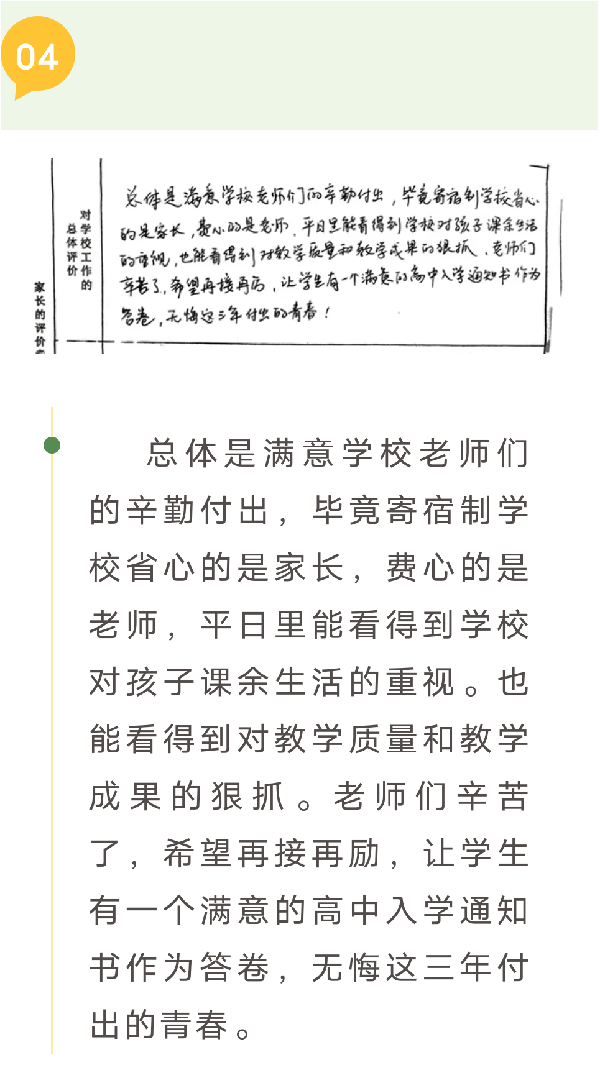 04
对学校工作的
总体评价
家长的评价
总体是满意学校老师们的辛勤付出，毕竟寄宿制学校省心
的是家长，费心的是老师，平日里能看得到学校对孩子课余生活
的重视，也能看得到对教学质量和教学成果的狠抓，老师们
辛苦了，希望再接再历，让学生有一个满意的高中入学通知书作为
答卷，无悔这三年付出的青春！
总体是满意学校老师们
的辛勤付出，毕竟寄宿制学
校省心的是家长，费心的是
老师，平日里能看得到学校
对孩子课余生活的重视。也
能看得到对教学质量和教学
成果的狠抓。老师们辛苦
了，希望再接再励，让学生
有一个满意的高中入学通知
书作为答卷，无悔这三年付
出的青春。